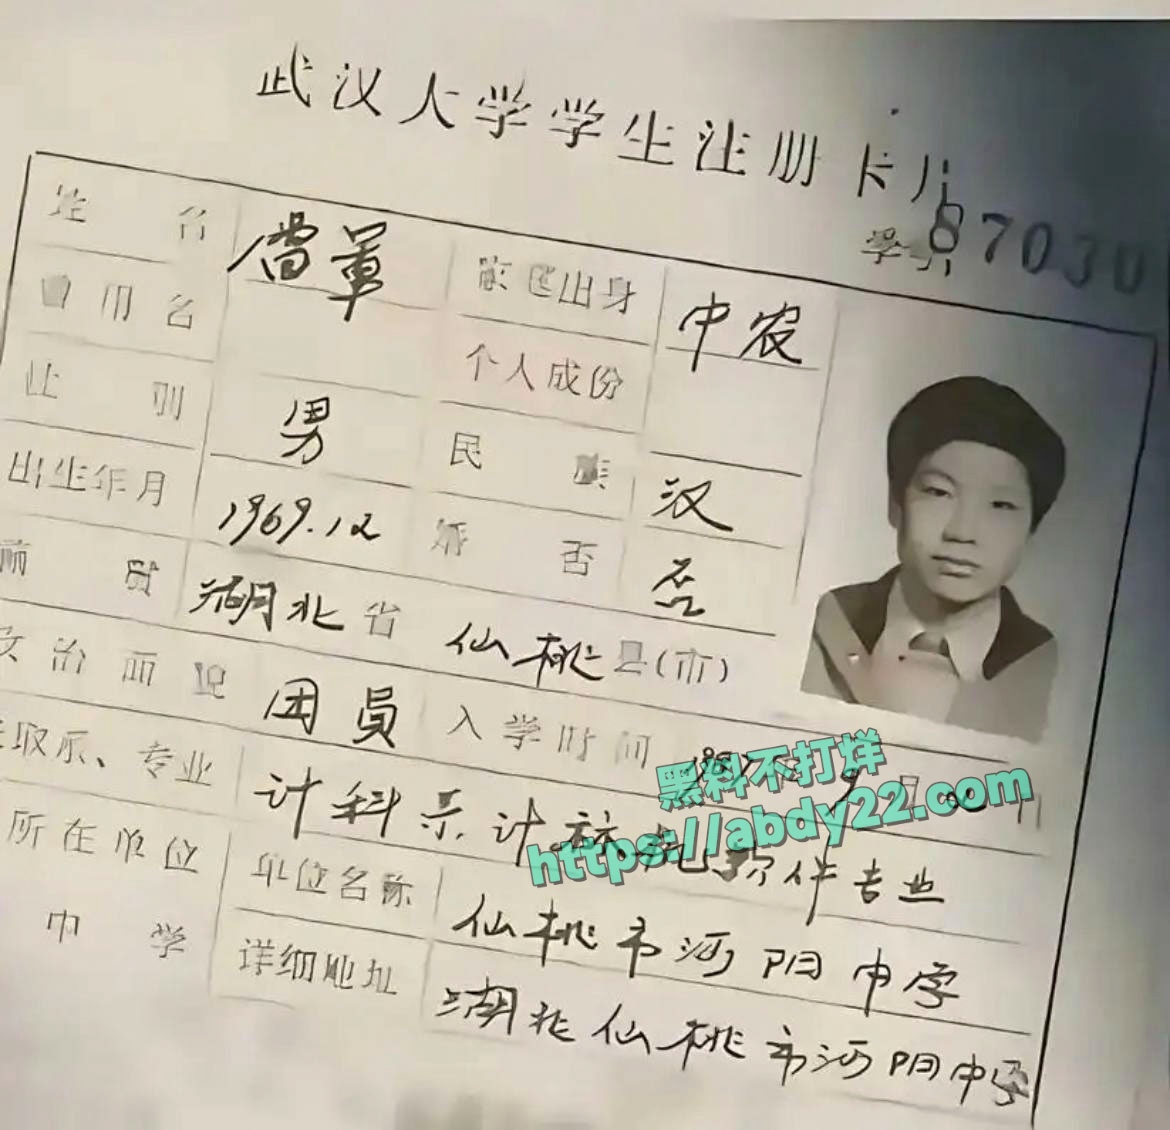 武汉大学学生注册卡片
学号 87030
姓名 雷军 家庭出身 中农
曾用名 个人成份
性别 男 民族 汉
出生年月 1969.12 婚否 否
籍贯 湖北省 仙桃县(市)
政治面貌 团员 入学时间
录取系、专业 计科系计算机软件专业
所在单位 单位名称 仙桃市沔阳中学
中学 详细地址 湖北仙桃市沔阳中学
黑料不打烊
https://abdy22.com